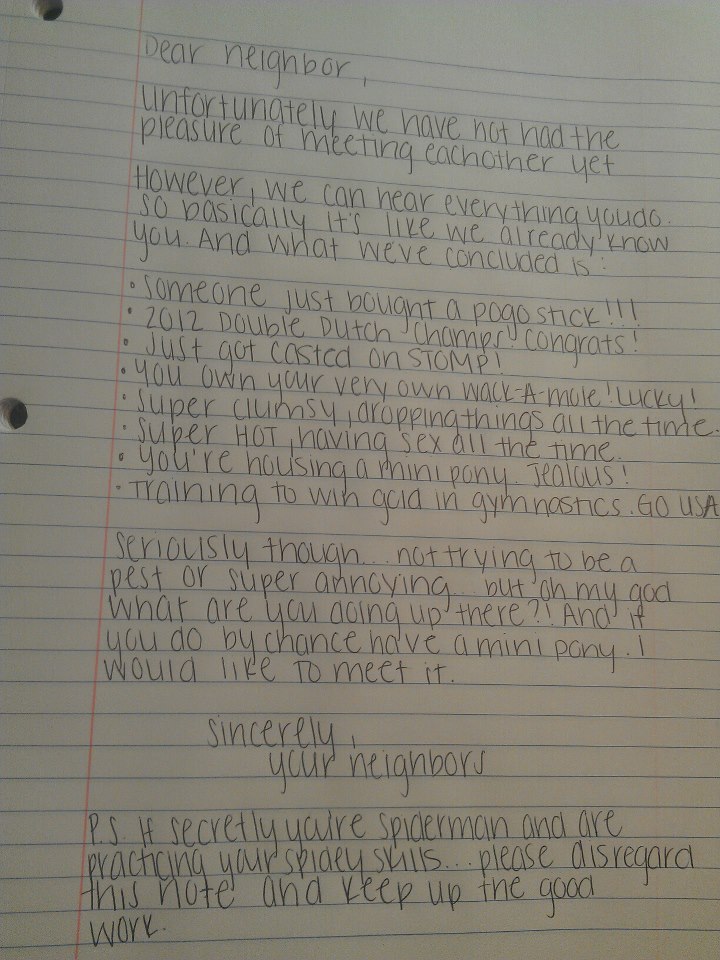 Dear neighbor,
Unfortunately we have not had the
pleasure of meeting eachother yet
However, we can hear everything you do.
so basically it's like we already know
you. And what we've concluded is:
• someone just bought a pogo stick!!!
• 2012 Double Dutch champs! congrats!
• Just got casted on STOMP!
• you own your very own wack-A-mole! Lucky!
• super clumsy, dropping things all the time.
• super HOT, having sex all the time.
• you're housing a mini pony. Jealous!
• Training to win gold in gymnastics. GO USA
seriously though... not trying to be a
pest or super annoying... but oh my god
what are you doing up there?! And if
you do by chance have a mini pony. i
would like to meet it.
sincerely,
your neighbors
P.S. If secretly you're spiderman and are
practicing your spidey skills... please disregard
this note and keep up the good
work.